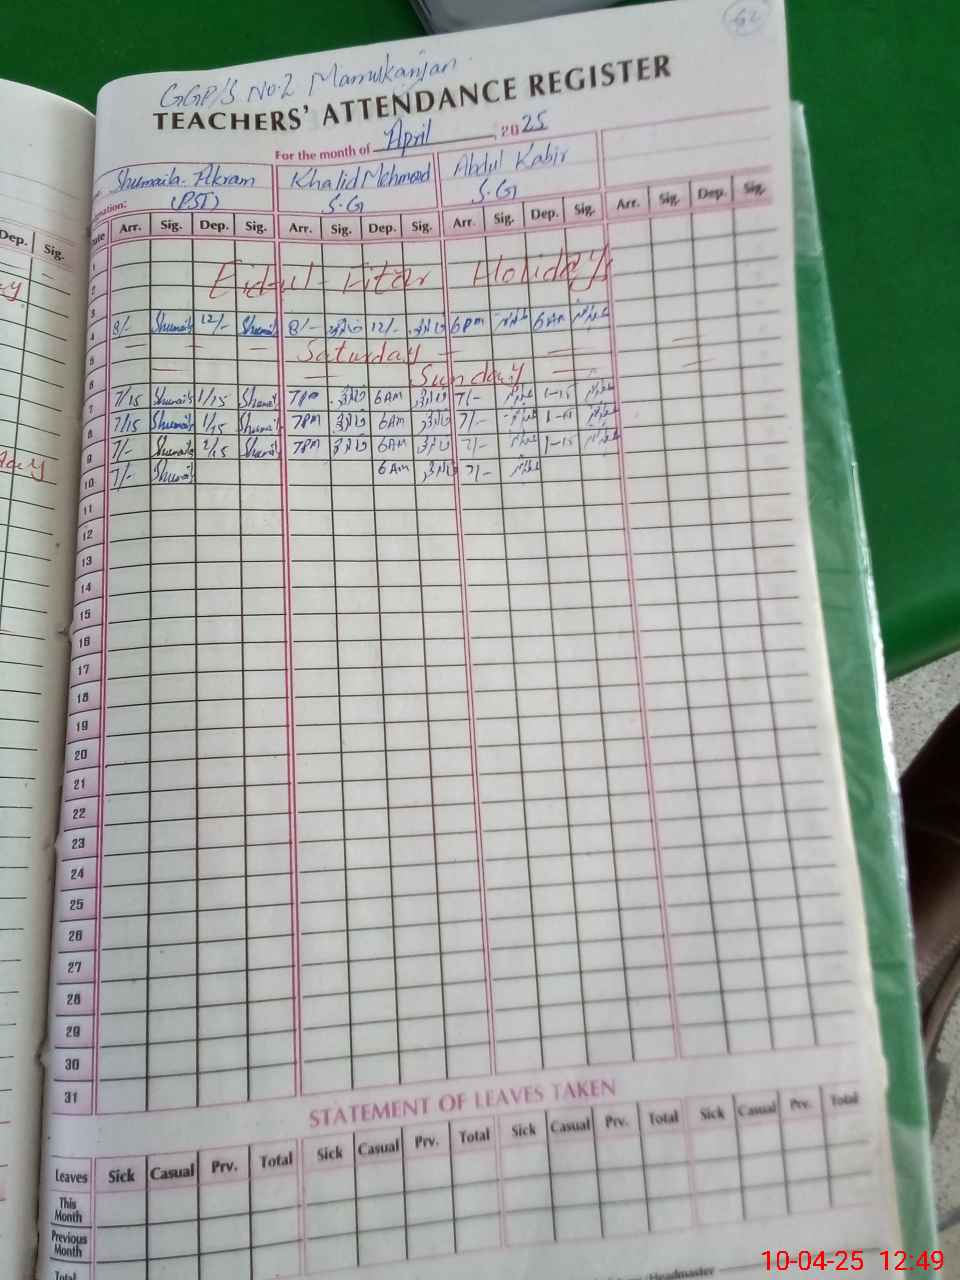 62
GGP/S No.2 Mamukanjan
TEACHERS' ATTENDANCE REGISTER
For the month of April, 2025
Shumaila Akram Khalid Mehmood Abdul Kabir
(PST) S.G S.G
Arr. Sig. Dep. Sig. Arr. Sig. Dep. Sig. Arr. Sig. Dep. Sig. Arr. Sig. Dep. Sig.
Dep. Sig.
1
2 Eidul-Fitar Holidays
3
4 8/- Shumaila 12/- Shumaila 8/- 12/- 6PM 6AM
5 Saturday
6 Sunday
7 7/15 Shumaila 1/15 Shumaila 7PM 6AM 7/- 1-15
8 7/15 Shumaila 1/15 Shumaila 7PM 6AM 7/- 1-15
9 7/- Shumaila 1/15 Shumaila 7PM 6AM 7/- 1-15
10 7/- Shumaila 6AM 7/-
11
12
13
14
15
16
17
18
19
20
21
22
23
24
25
26
27
28
29
30
31
STATEMENT OF LEAVES TAKEN
Leaves Sick Casual Prv. Total Sick Casual Prv. Total Sick Casual Prv. Total Sick Casual Prv. Total
This Month
Previous Month
Total
Headmaster
10-04-25 12:49